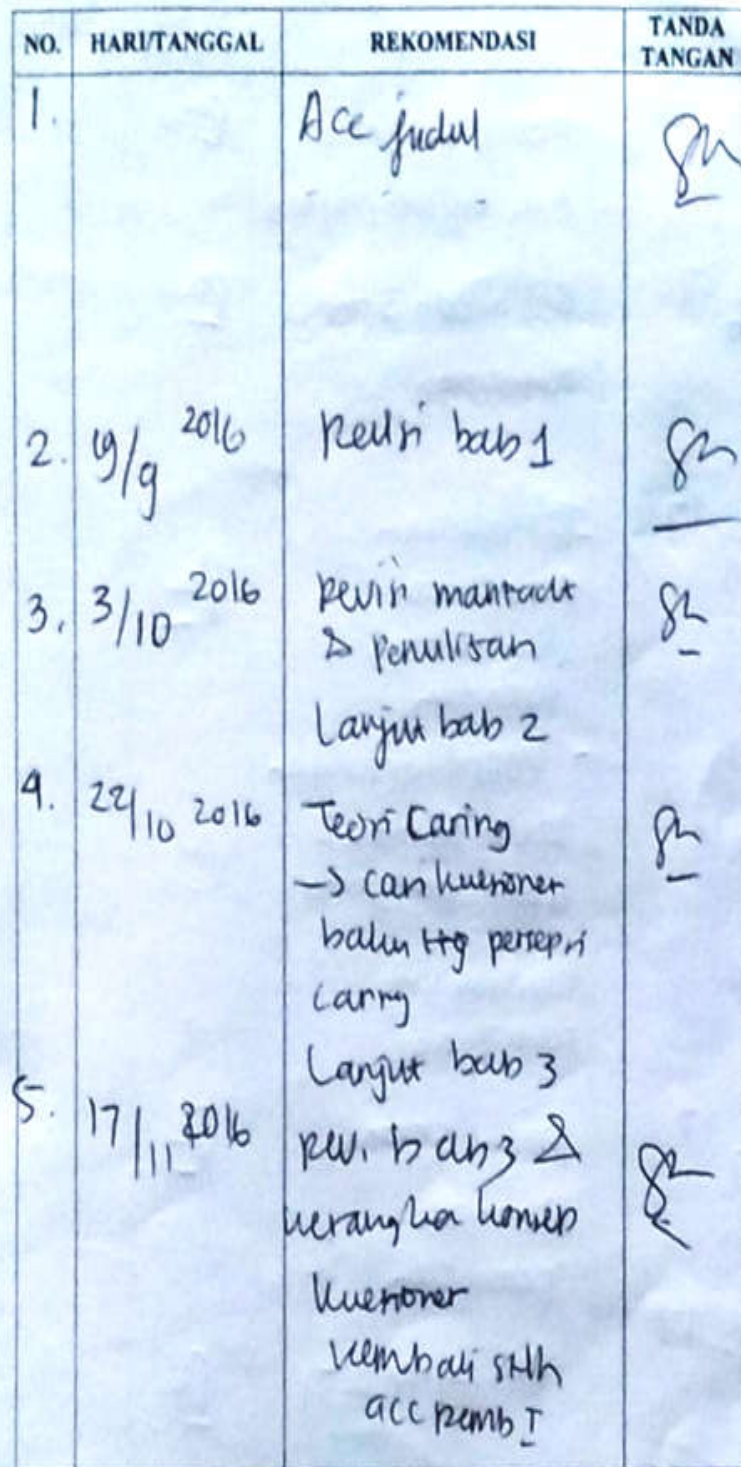 NO. HARI/TANGGAL REKOMENDASI TANDA TANGAN
1. Acc judul
2. 19/9 2016 Revisi bab 1
3. 3/10 2016 Revisi manfaat
& penulisan
Lanjut bab 2
4. 22/10 2016 Teori Caring
→ cari kuesioner
baku ttg persepsi
caring
Lanjut bab 3
5. 17/11 2016 Revi bab 3 &
kerangka konsep
kuesioner
kembali stlh
acc pemb I